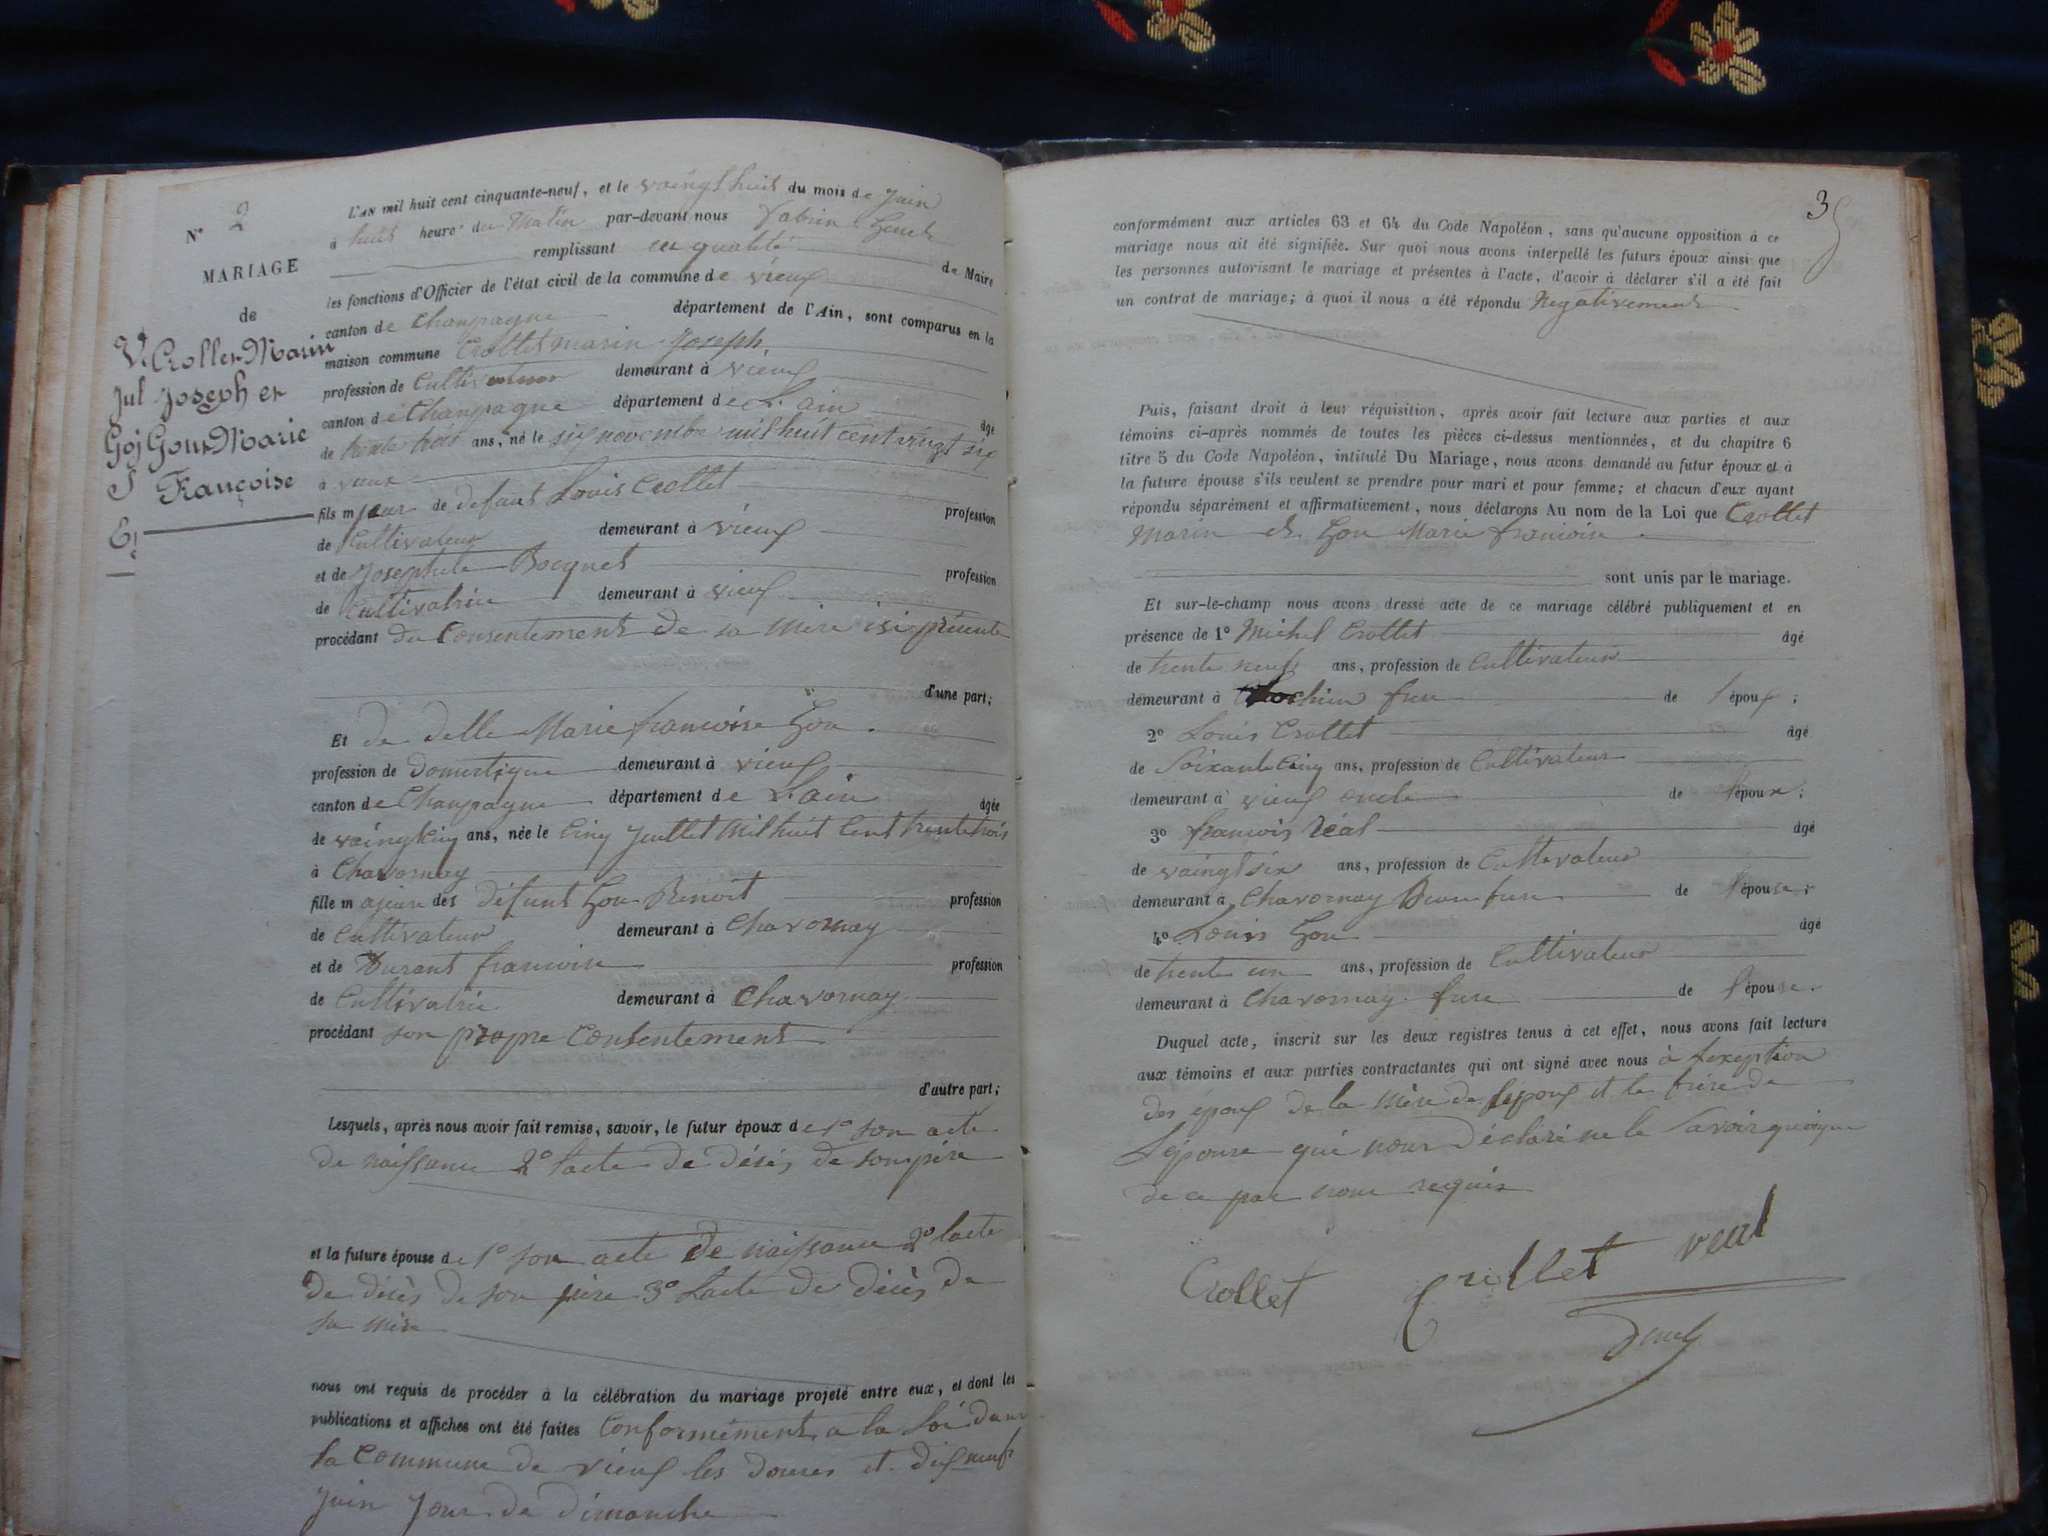 N° 2
MARIAGE
de
Crollet Marin
Joseph et
Gou Marie
Françoise
L'AN mil huit cent cinquante-neuf, et le vaingt huit du mois de Juin
à huit heure du Matin par-devant nous
remplissant en qualité de Maire
les fonctions d'Officier de l'état civil de la commune de vieux
canton de Champagne département de l'Ain, sont comparus en la
maison commune Crollet marin Joseph,
profession de Cultivateur demeurant à vieux
canton de Champagne département de L'ain âgé
de trente trois ans, né le six novembre mil huit cent vingt six
à vieux
fils majeur de defunt Louis Crollet profession
de Cultivateur demeurant à vieux
et de Josephete Bocquet profession
de Cultivatrice demeurant à vieux
procédant du Consentement de sa mère isi présente
d'une part;
Et de delle Marie francoise Gou
profession de Domestique demeurant à vieux
canton de Champagne département de L'ain âgée
de vaingt cinq ans, née le Cinq Juillet mil huit Cent trente trois
à Chavornay
fille majeure des défunt Gou Benoit profession
de Cultivateur demeurant à Chavornay
et de Durant francoise profession
de Cultivatrice demeurant à Chavornay
procédant son propre Consentement
d'autre part;
Lesquels, après nous avoir fait remise, savoir, le futur époux de 1° son acte
de naissance 2° l'acte de désès de son père
et la future épouse de 1° son acte de naissance 2° l'acte
de décès de son père 3° L'acte de décès de
sa mère
nous ont requis de procéder à la célébration du mariage projeté entre eux, et dont les
publications et affiches ont été faites Conformément a la loi dans
la commune de vieux les douzes et dix neuf
juin Jour de dimanche
35
conformément aux articles 63 et 64 du Code Napoléon, sans qu'aucune opposition à ce
mariage nous ait été signifiée. Sur quoi nous avons interpellé les futurs époux ainsi que
les personnes autorisant le mariage et présentes à l'acte, d'avoir à déclarer s'il a été fait
un contrat de mariage; à quoi il nous a été répondu Negativement
Puis, faisant droit à leur réquisition, après avoir fait lecture aux parties et aux
témoins ci-après nommés de toutes les pièces ci-dessus mentionnées, et du chapitre 6
titre 5 du Code Napoléon, intitulé Du Mariage, nous avons demandé au futur époux et à
la future épouse s'ils veulent se prendre pour mari et pour femme; et chacun d'eux ayant
répondu séparément et affirmativement, nous déclarons Au nom de la Loi que Crollet
Marin et Gou Marie francoise
sont unis par le mariage.
Et sur-le-champ nous avons dressé acte de ce mariage célébré publiquement et en
présence de 1° Michel Crollet âgé
de trente neuf ans, profession de Cultivateur
demeurant à de l'époux;
2° Louis Crollet âgé
de Soixante Cinq ans, profession de Cultivateur
demeurant à vieux oncle de l'époux;
3° francois Réal âgé
de vaingt six ans, profession de Cultivateur
demeurant à Chavornay Beau frere de l'épouse;
4° Louis Gou âgé
de trente un ans, profession de Cultivateur
demeurant à Chavornay frere de l'épouse.
Duquel acte, inscrit sur les deux registres tenus à cet effet, nous avons fait lecture
aux témoins et aux parties contractantes qui ont signé avec nous à l'exeption
des époux de la mère de l'époux et le frère de
L'épouse qui nous déclaré ne le Savoir quoique
de ce par nous requis
Crollet Crollet réal